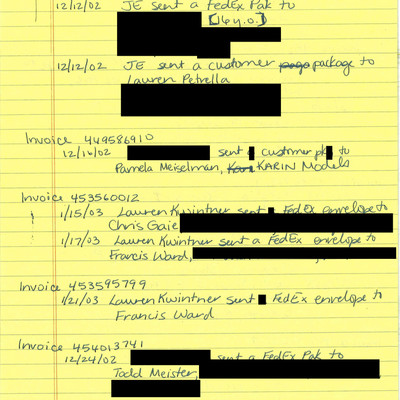 12/12/02 JE sent a FedEx Pak to
[16 y.o.]
12/12/02 JE sent a customer package to
Lauren Petrella
Invoice 449586910
12/16/02 sent customer pk to
Pamela Meiselman, KARIN Models
Invoice 453560012
1/15/03 Lauren Kwintner sent FedEx envelope to
Chris Gaie
1/17/03 Lauren Kwintner sent a FedEx envelope to
Francis Ward,
Invoice 453595799
1/21/03 Lauren Kwintner sent FedEx envelope to
Francis Ward
Invoice 454013741
12/24/02 sent a FedEx Pak to
Todd Meister,